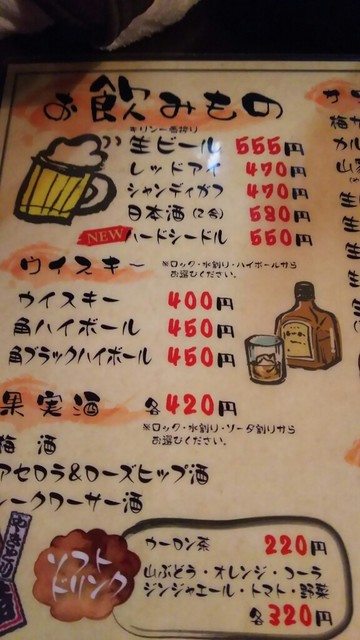 お飲みもの
キリン一番搾り
生ビール 555円
レッドアイ 470円
シャンディガフ 470円
日本酒(2合) 580円
NEW ハードシードル 550円
ウイスキー ※ロック・水割り・ハイボールから
お選びください。
ウイスキー 400円
角ハイボール 450円
角ブラックハイボール 450円
果実酒 各420円
※ロック・水割り・ソーダ割りから
お選びください。
梅 酒
アセロラ&ローズヒップ酒
ークワーサー酒
ソフト
ドリンク
ウーロン茶 220円
山ぶどう・オレンジ・コーラ
ジンジャエール・トマト・野菜
各320円
サ
梅
カル
山
生
生
生
生